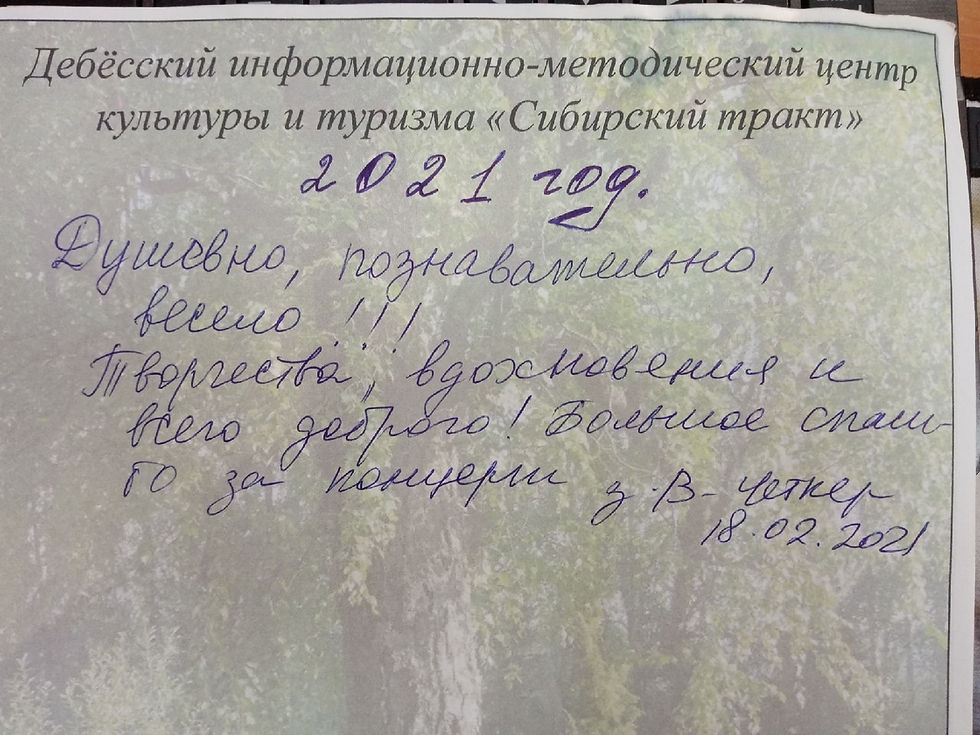 Дебёсский информационно-методический центр
культуры и туризма «Сибирский тракт»
2021 год.
Душевно, познавательно,
весело!!!
Творчества, вдохновения и
всего доброго! Большое спаси-
бо за концерт з.В-Четкер
18.02.2021